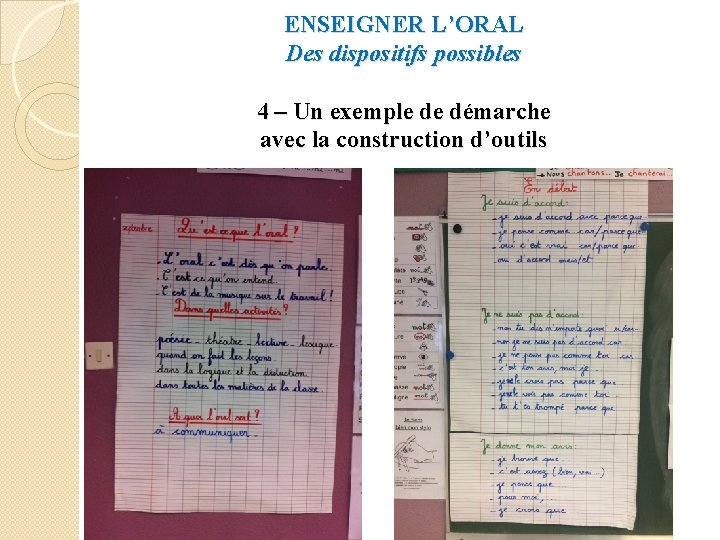 ENSEIGNER L’ORAL
Des dispositifs possibles
4 – Un exemple de démarche
avec la construction d’outils
septembre
Qu'est ce que l'oral ?
- L'oral c'est dès qu'on parle.
- C'est ce qu'on entend.
- C'est de la musique sur le travail !
Dans quelles activités ?
poésie - théâtre - lecture - lexique -
quand on fait les leçons
dans la logique et la déduction
dans toutes les matières de la classe.
A quoi l'oral sert ?
à communiquer.
→ Nous chantons... Je chanterai...
En débat
Je suis d'accord :
- je suis d'accord avec parce que
- je pense comme car/parce que
- oui c'est vrai car/parce que
- d'accord mais/et
Je ne suis pas d'accord :
- non tu dis n'importe quoi
- non je ne suis pas d'accord car
- je ne pense pas comme toi car
- c'est ton avis, moi je
- je crois pas parce que
- vois pas comme toi car
- tu t'es trompé parce que
Je donne mon avis :
- je trouve que
- c'est assez (bien, vrai...)
- je pense que ...
- pour moi, ...
- je crois que
mot
mot